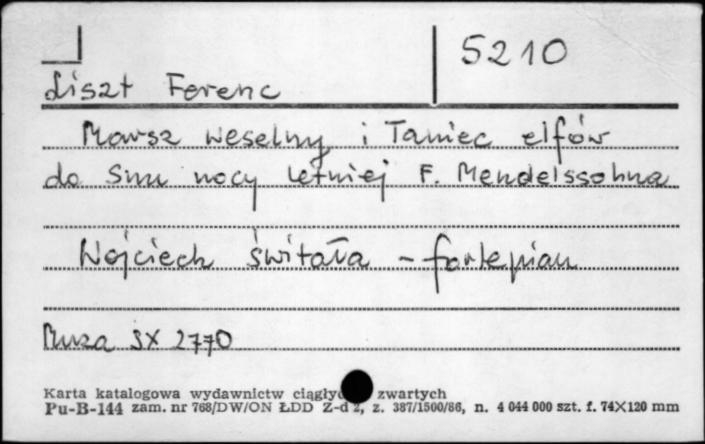 5210
Liszt Ferenc
Marsz weselny i Taniec elfów
do Snu nocy letniej F. Mendelssohna
Wojciech Świtała - fortepian
Muza SX 2770
Karta katalogowa wydawnictw zwartych
Pu-B-144 zam. nr 768/DW/ON ŁDD Z-d 2, z. 387/1500/86, n. 4 044 000 szt. f. 74X120 mm